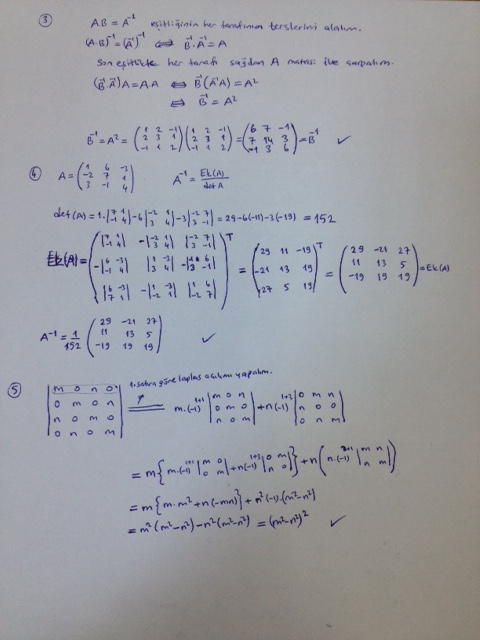 ③ AB = A⁻¹ eşitliğinin her tarafının terslerini alalım.
(A·B)⁻¹ = (A⁻¹)⁻¹ ⟺ B⁻¹·A⁻¹ = A
Son eşitlikte her tarafı sağdan A matrisi ile çarpalım.
(B⁻¹A⁻¹)A = A.A ⟺ B⁻¹(A⁻¹A) = A²
⟺ B⁻¹ = A²
B⁻¹ = A² = (1 2 -1; 2 3 1; -1 1 2) (1 2 -1; 2 3 1; -1 1 2) = (6 7 -1; 7 14 3; -1 3 6) = B⁻¹ ✓
④ A = (1 6 -3; -2 7 1; 3 -1 4) A⁻¹ = Ek(A)/det A
det(A) = 1.|7 1; -1 4| - 6|-2 1; 3 4| - 3|-2 7; 3 -1| = 29 - 6(-11) - 3(-19) = 152
Ek(A) = (|7 1; -1 4| -|-2 1; 3 4| |-2 7; 3 -1|; -|6 -3; -1 4| |1 -3; 3 4| -|1 6; 3 -1|; |6 -3; 7 1| -|1 -3; -2 1| |1 6; -2 7|)ᵀ = (29 11 -19; -21 13 19; 27 5 19)ᵀ = (29 -21 27; 11 13 5; -19 19 19) = Ek(A)
A⁻¹ = 1/152 (29 -21 27; 11 13 5; -19 19 19) ✓
⑤ |m 0 n 0; 0 m 0 n; n 0 m 0; 0 n 0 m| = 1. satıra göre laplas açılımı yapalım. m.(-1)¹⁺¹ |m 0 n; 0 m 0; n 0 m| + n(-1)¹⁺³ |0 m n; n 0 0; 0 n m|
= m{m.(-1)¹⁺¹ |m 0; 0 m| + n(-1)¹⁺³ |0 m; n 0|} + n(n.(-1)²⁺¹ |m n; n m|)
= m{m.m² + n(-mn)} + n²(-1).(m²-n²)
= m²(m²-n²) - n²(m²-n²) = (m²-n²)² ✓